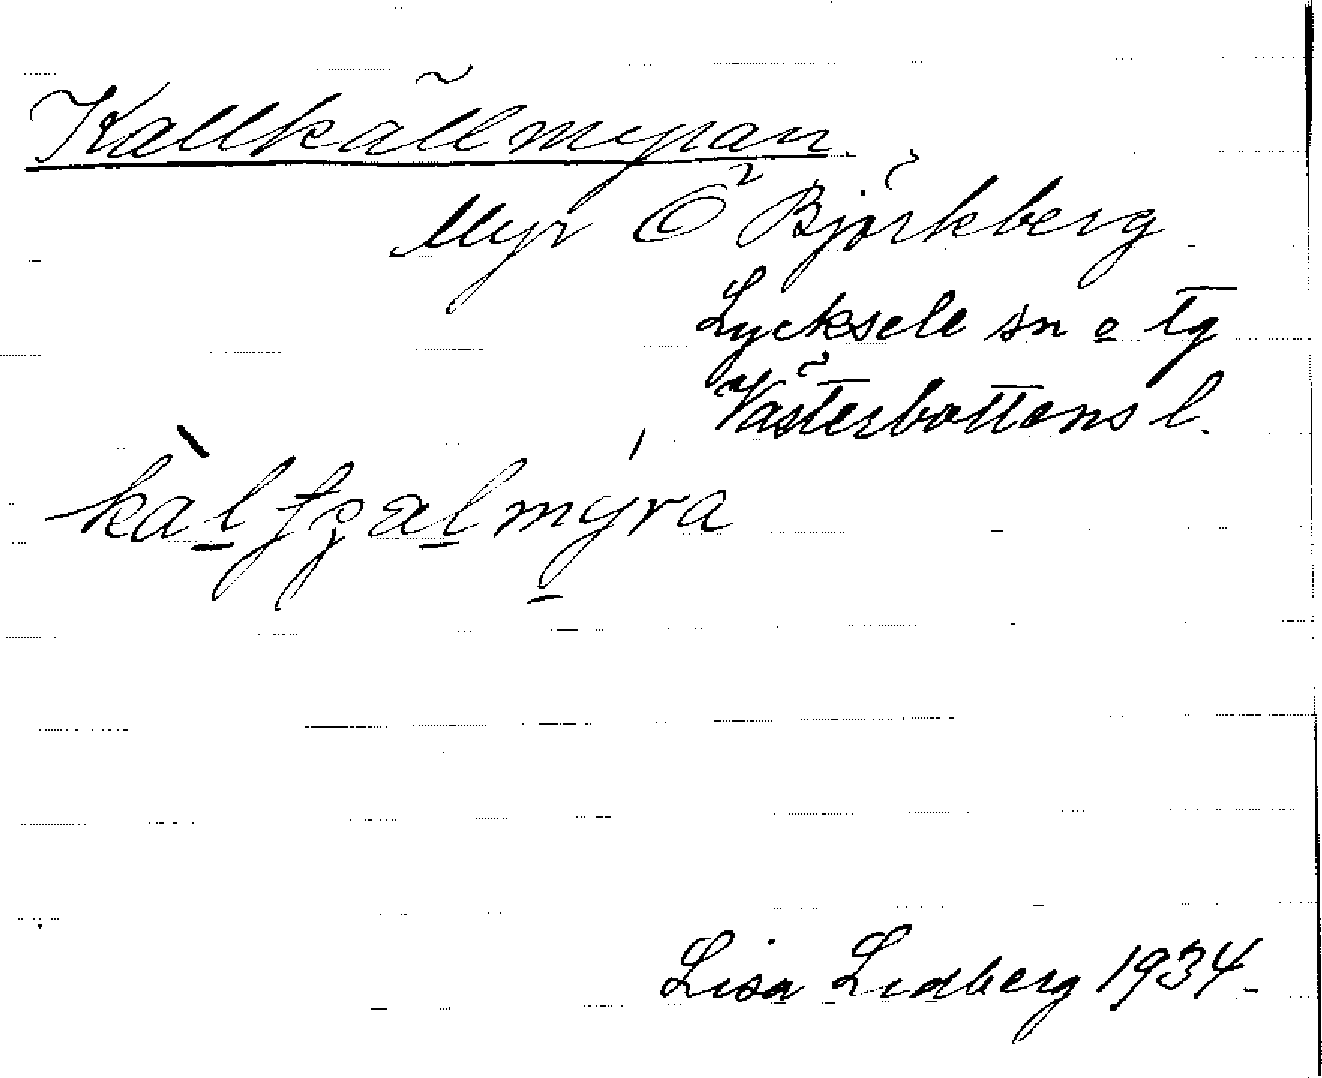 Kallkällmyran.
Myr Ö Björkberg
Lycksele sn o tg
Västerbottens l.
Lisa Lidberg 1934